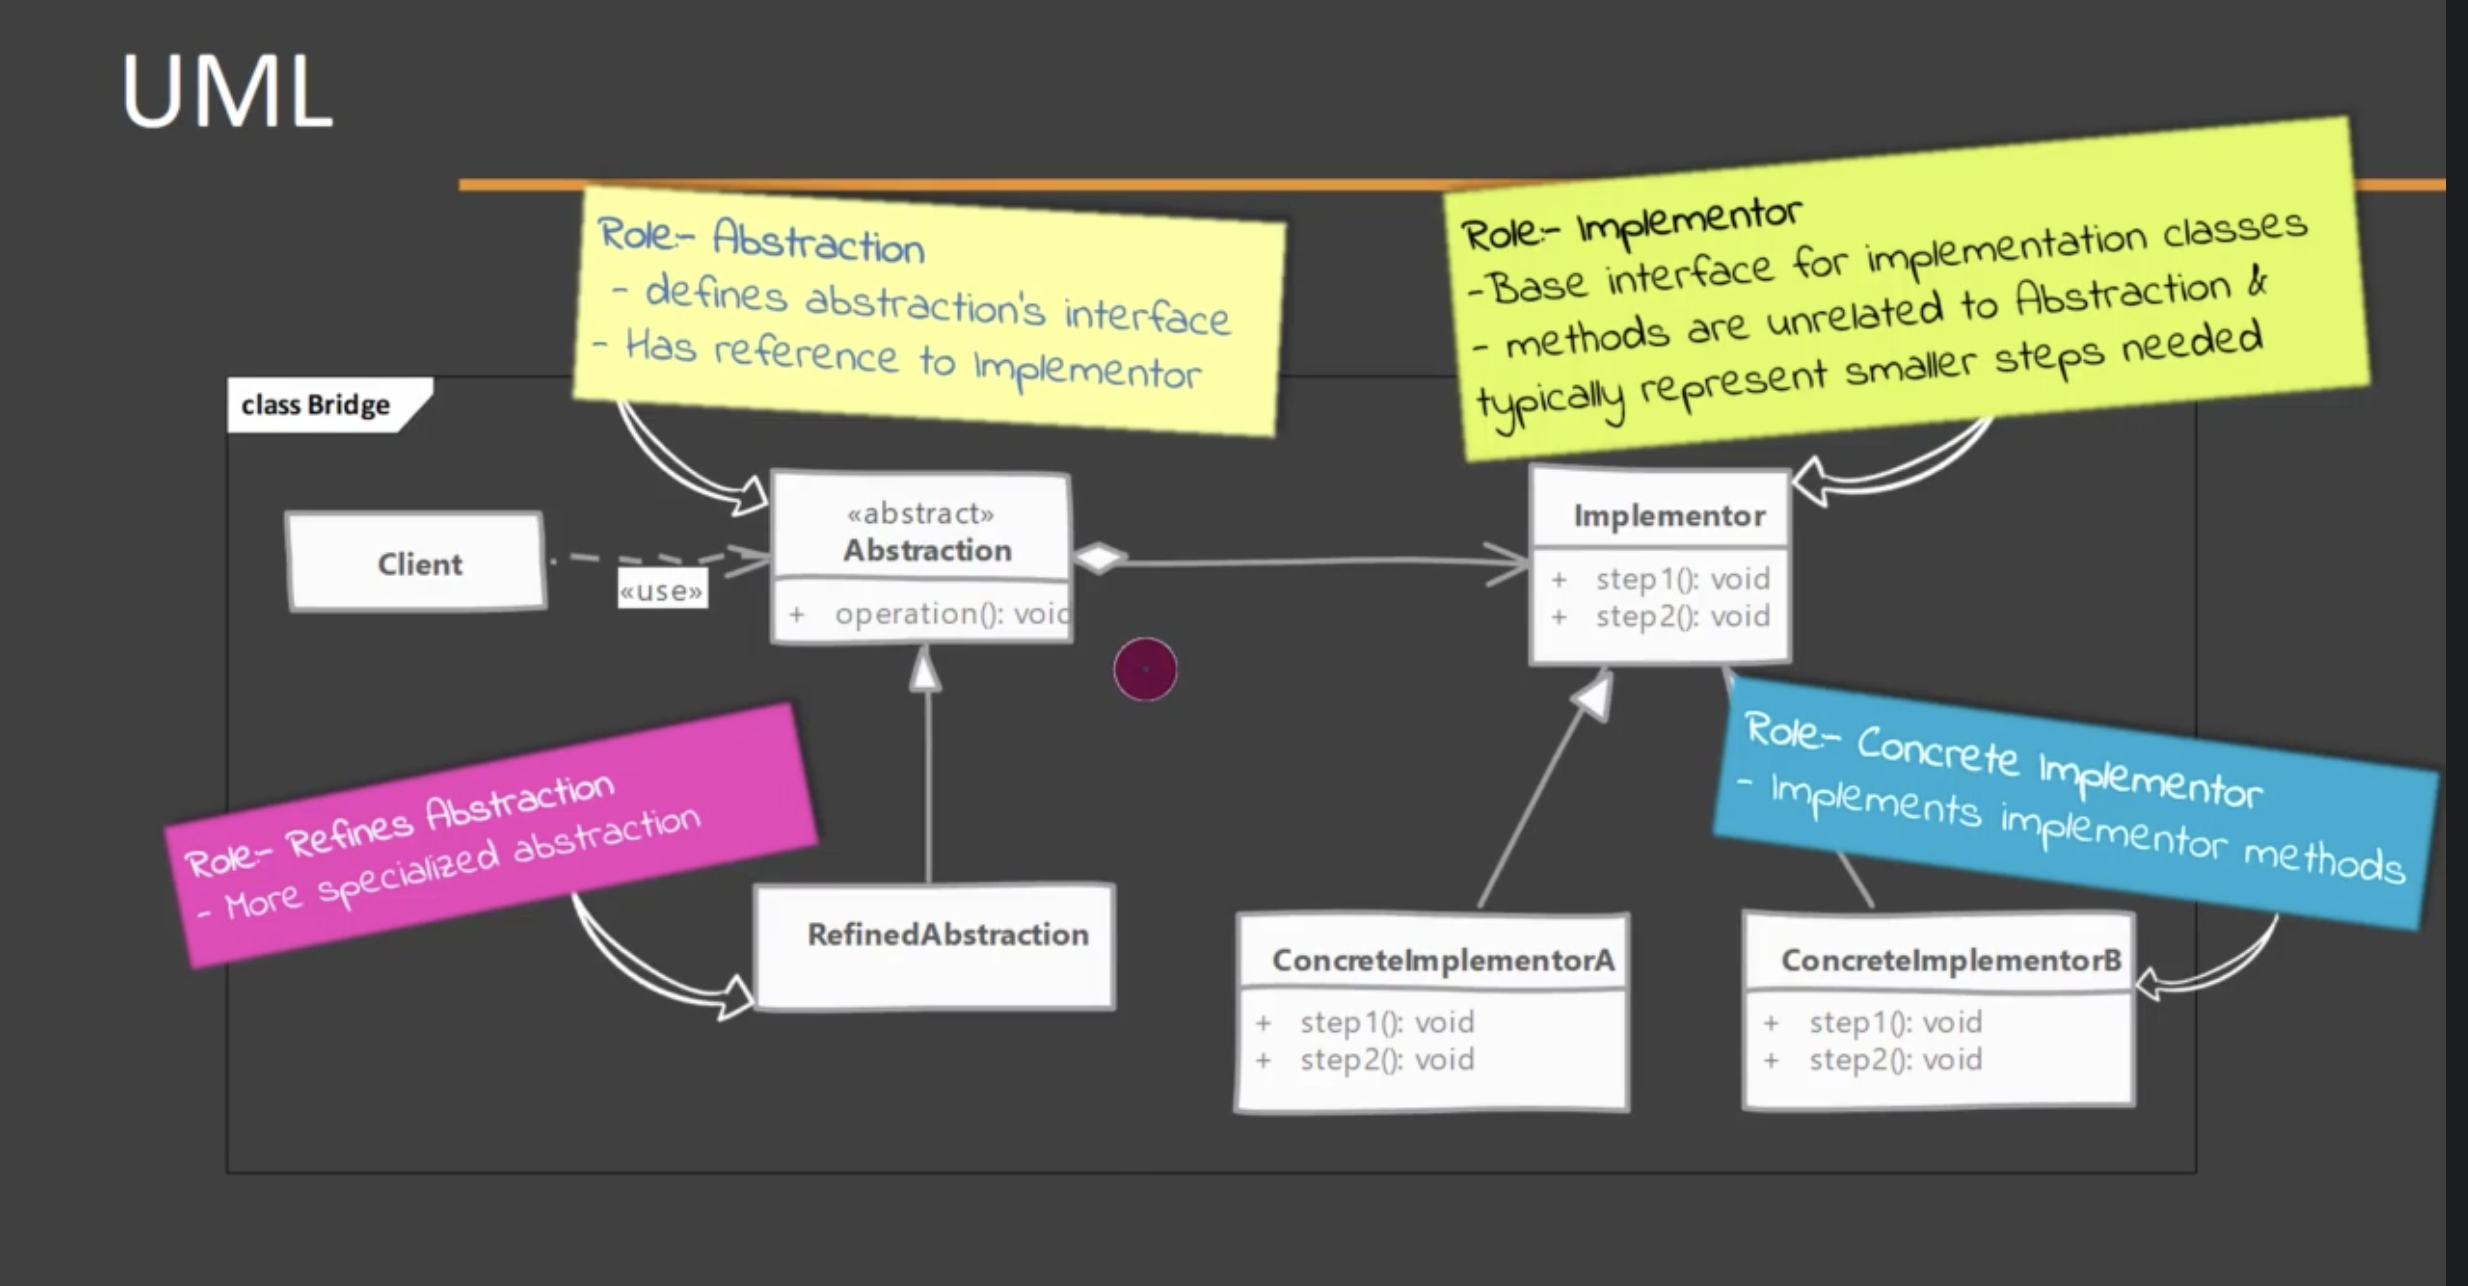 UML
Role:- Abstraction
- defines abstraction's interface
- Has reference to Implementor
Role:- Implementor
-Base interface for implementation classes
- methods are unrelated to Abstraction &
typically represent smaller steps needed
class Bridge
Client
«use»
«abstract»
Abstraction
+ operation(): void
Implementor
+ step1(): void
+ step2(): void
Role:- Refines Abstraction
- More specialized abstraction
Role:- Concrete Implementor
- Implements implementor methods
RefinedAbstraction
ConcreteImplementorA
+ step1(): void
+ step2(): void
ConcreteImplementorB
+ step1(): void
+ step2(): void